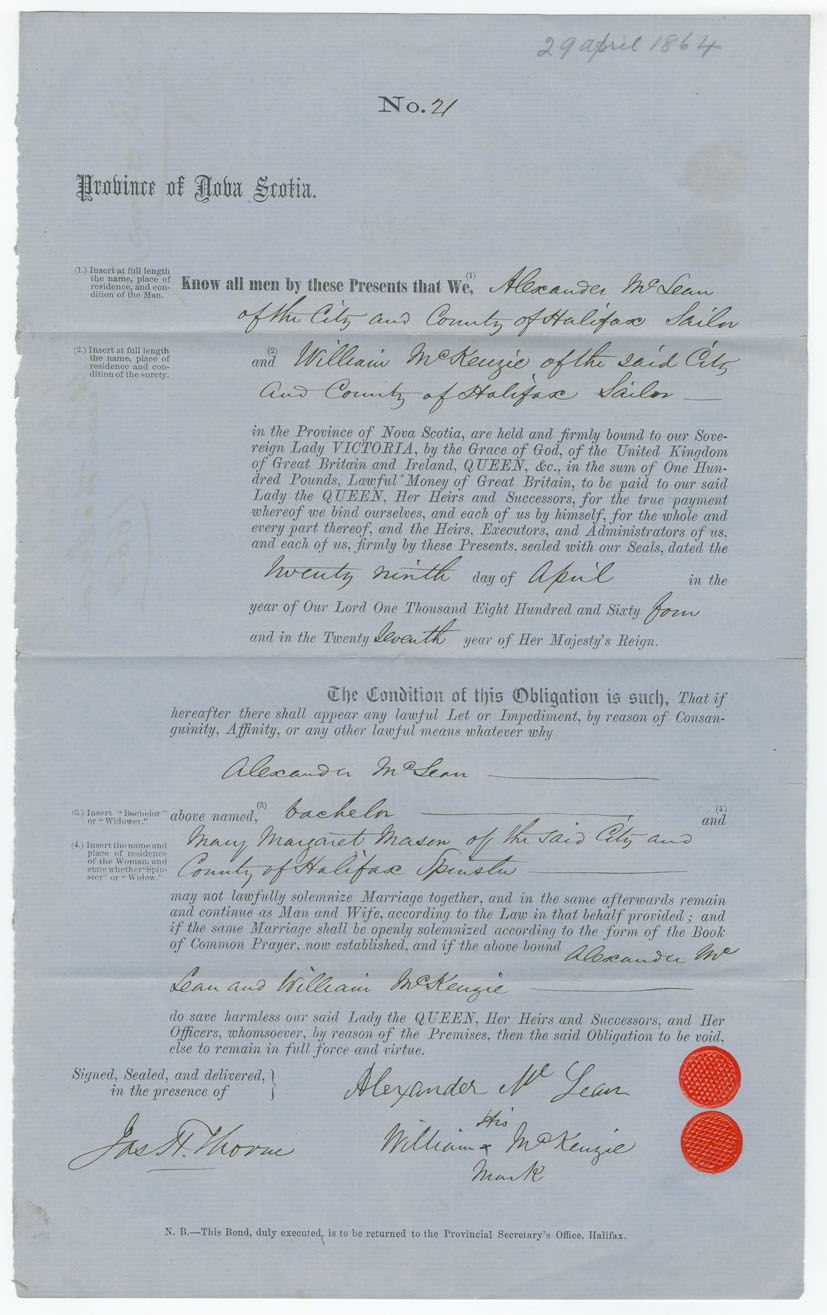 29 april 1864
No. 21
Province of Nova Scotia.
(1.) Insert at full length
the name, place of
residence, and con-
dition of the Man.
Know all men by these Presents that We, (1) Alexander McLean
of the City and County of Halifax Sailor
(2.) Insert at full length
the name, place of
residence and con-
dition of the surety.
and (2) William McKenzie of the said City
and County of Halifax Sailor —
in the Province of Nova Scotia, are held and firmly bound to our Sove-
reign Lady VICTORIA, by the Grace of God, of the United Kingdom
of Great Britain and Ireland, QUEEN, &c., in the sum of One Hun-
dred Pounds, Lawful Money of Great Britain, to be paid to our said
Lady the QUEEN, Her Heirs and Successors, for the true payment
whereof we bind ourselves, and each of us by himself, for the whole and
every part thereof, and the Heirs, Executors, and Administrators of us,
and each of us, firmly by these Presents, sealed with our Seals, dated the
twenty ninth day of April in the
year of Our Lord One Thousand Eight Hundred and Sixty four
and in the Twenty Seventh year of Her Majesty's Reign.
The Condition of this Obligation is such, That if
hereafter there shall appear any lawful Let or Impediment, by reason of Consan-
guinity, Affinity, or any other lawful means whatever why
Alexander McLean —
(3.) Insert "Bachelor"
or "Widower."
above named, (3) bachelor — (4) and
(4.) Insert the name and
place of residence
of the Woman, and
state whether "Spin-
ster" or "Widow."
Mary Margaret Mason of the said City and
County of Halifax Spinster —
may not lawfully solemnize Marriage together, and in the same afterwards remain
and continue as Man and Wife, according to the Law in that behalf provided; and
if the same Marriage shall be openly solemnized according to the form of the Book
of Common Prayer, now established, and if the above bound Alexander Mc
Lean and William McKenzie —
do save harmless our said Lady the QUEEN, Her Heirs and Successors, and Her
Officers, whomsoever, by reason of the Premises, then the said Obligation to be void,
else to remain in full force and virtue.
Signed, Sealed, and delivered,
in the presence of
Alexander Mc Lean
Jas H. Thorne
His
William x McKenzie
Mark
N. B.—This Bond, duly executed, is to be returned to the Provincial Secretary's Office, Halifax.